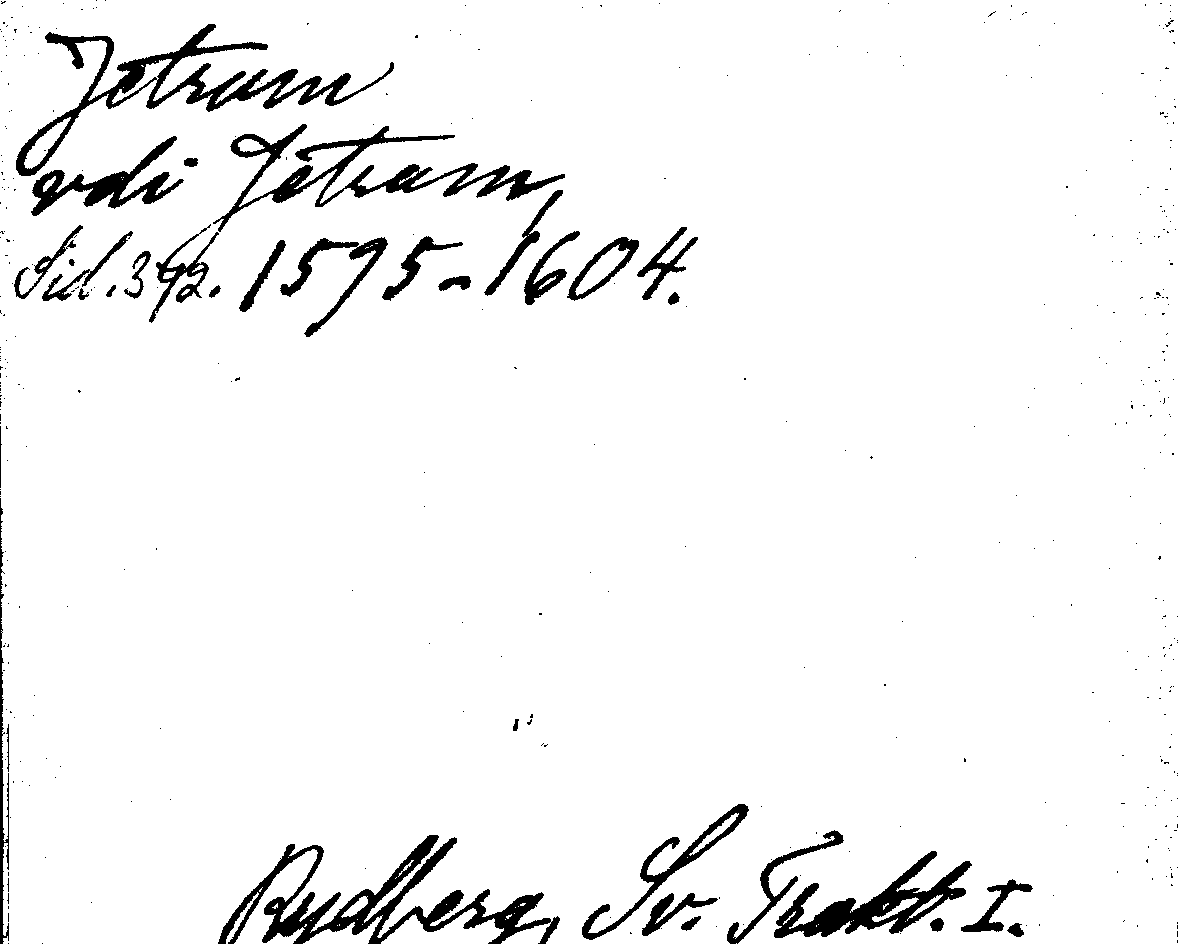 Jetram
vdi Jetram,
Sid. 392. 1595-1604.
Rydberg, Sv. Trakt. I.